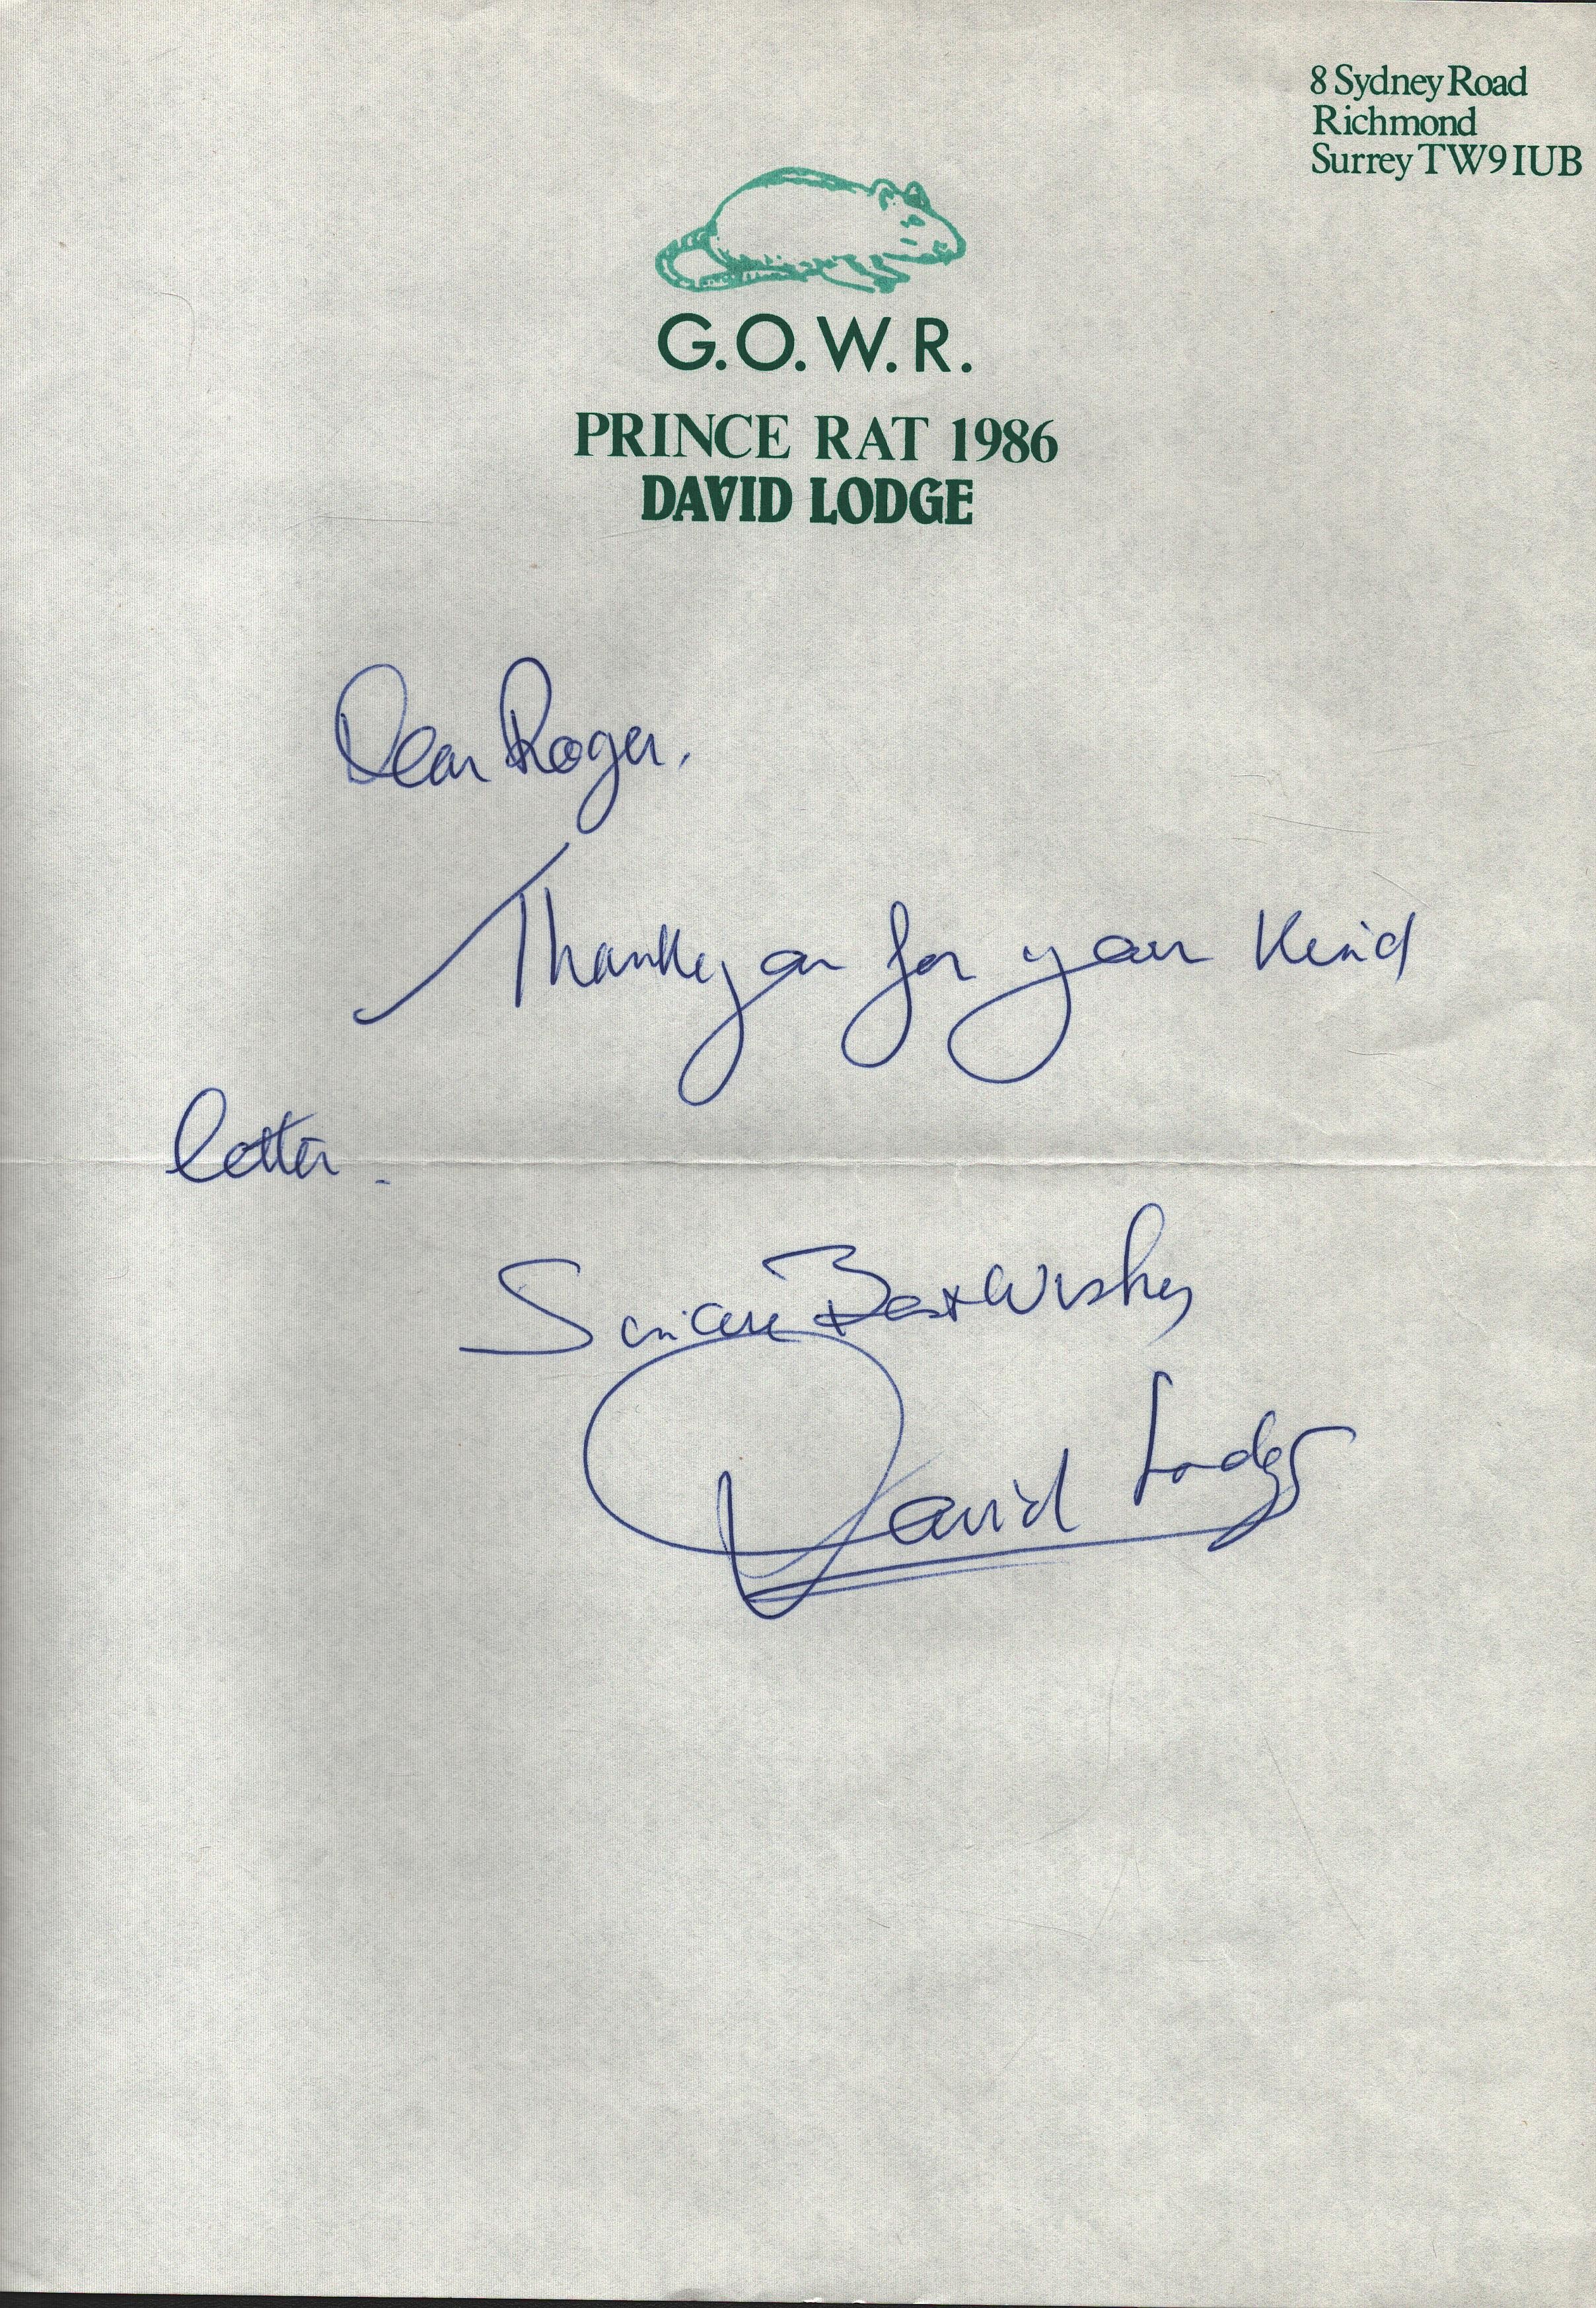 8 Sydney Road
Richmond
Surrey TW9 IUB
G.O.W.R.
PRINCE RAT 1986
DAVID LODGE
Dear Roger,
Thank you for your kind
letter.
Sincere Best Wishes
David Lodge